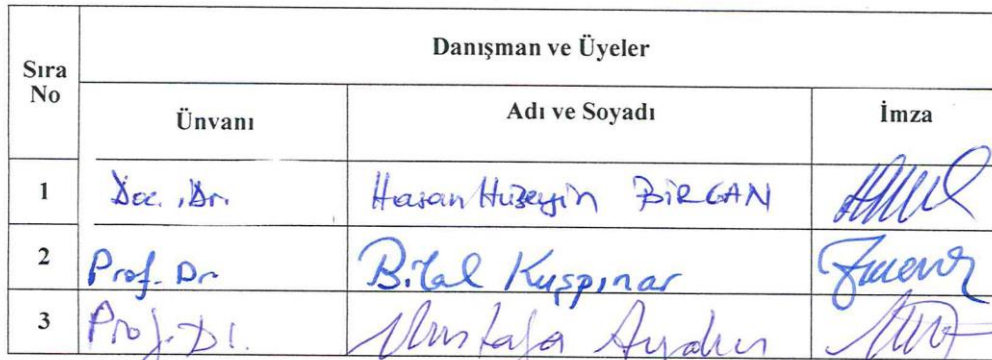 Sıra No
Danışman ve Üyeler
Ünvanı Adı ve Soyadı İmza
1 Doc. Dr. Hasan Hüseyin BİRGAN
2 Prof. Dr Bilal Kuşpınar
3 Prof. Dr. Mustafa